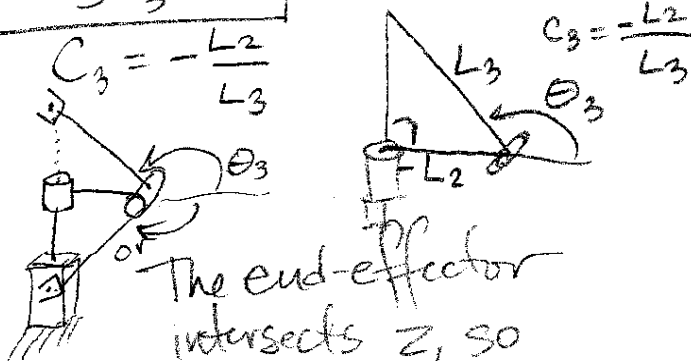 C₃ = - L2/L3
C3 = -L2/L3
L3
θ3
-L2
θ3
or
The end-effector
intersects Z, so